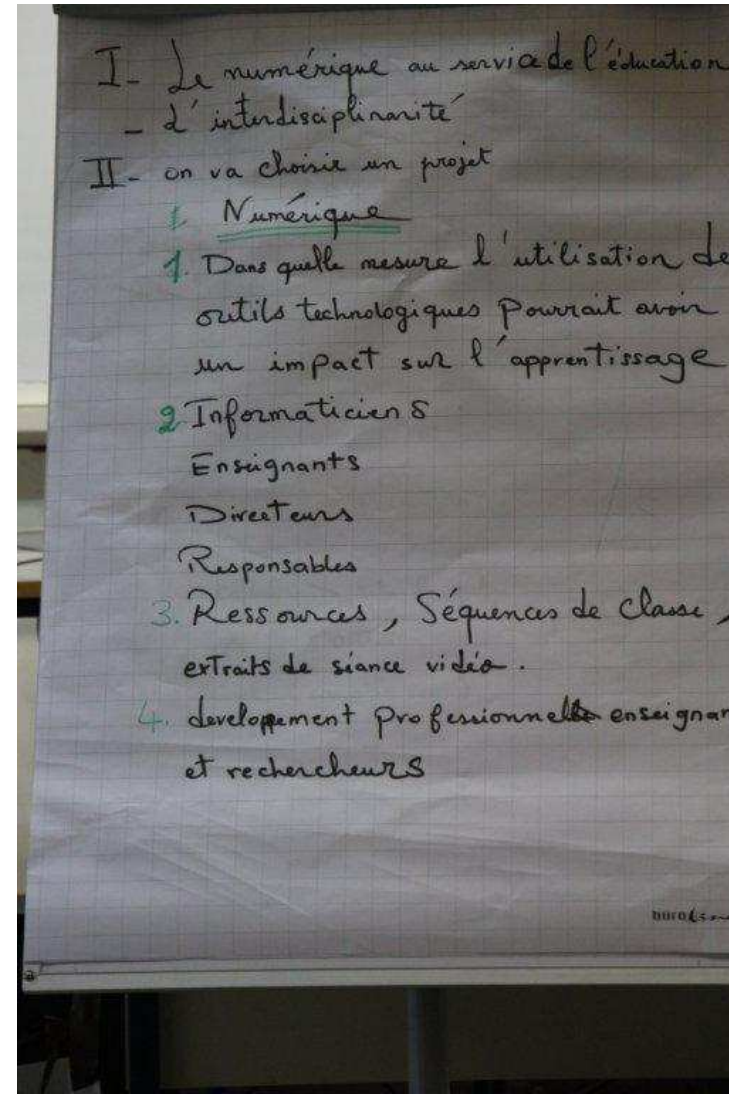 I- Le numérique au service de l'éducation
- L'interdisciplinarité
II- on va choisir un projet
1. Numérique
1. Dans quelle mesure l'utilisation de
outils technologiques pourrait avoir
un impact sur l'apprentissage
2 Informaticiens
Enseignants
Directeurs
Responsables
3. Ressources, Séquences de classe,
extraits de séance vidéo.
4. developpement professionnel enseignan
et rechercheurs